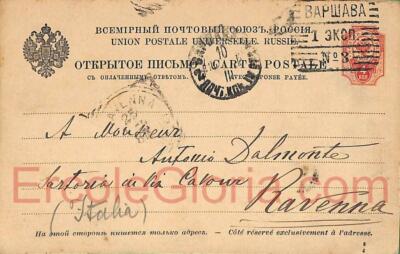 ВСЕМІРНЫЙ ПОЧТОВЫЙ СОЮЗЪ. РОССІЯ.
UNION POSTALE UNIVERSELLE. RUSSIE.
ОТКРЫТОЕ ПИСЬМО. CARTE POSTALE
СЪ ОПЛАЧЕННЫМЪ ОТВѢТОМЪ. RÉPONSE PAYÉE.
ВАРШАВА
1 ЭКСП.
№ 3
10
III
A Monsieur
Antonio Dalmonte
Sartoria Cavour
Ravenna
(Italia)
ErcoleGloria.com
На этой сторонѣ пишется только адресъ. — Côté réservé exclusivement à l'adresse.